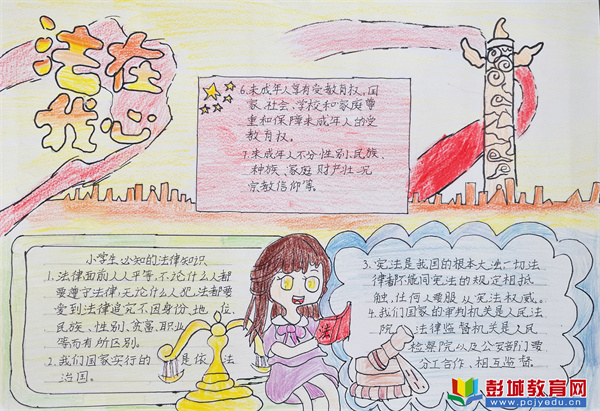 法在
我心
6.未成年人享有受教育权,国
家、社会、学校和家庭尊
重和保障未成年人的受
教育权。
7.未成年人不分性别、民族、
种族、家庭财产状况
宗教信仰等。
小学生必知的法律知识
1.法律面前人人平等,不论什么人都
要遵守法律,无论什么人犯法都要
受到法律追究不因身份、地位、
民族、性别、贫富、职业
等而有所区别。
2.我们国家实行的是依法
治国。
法
3.宪法是我国的根本大法一切法
律都不能同宪法的规定相抵
触,任何人要服从宪法权威。
4.我们国家的审判机关是人民法
院,法律监督机关是人民
检察院以及公安部门要
分工合作、相互监督。
彭城教育网
www.pcjyedu.cn